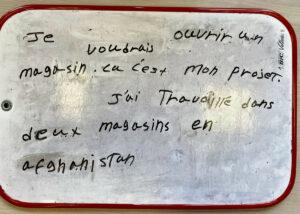 Je voudrais ouvrir un
magasin. ça c'est mon projet.
J'ai Travaillé dans
deux magasins en
afghanistan